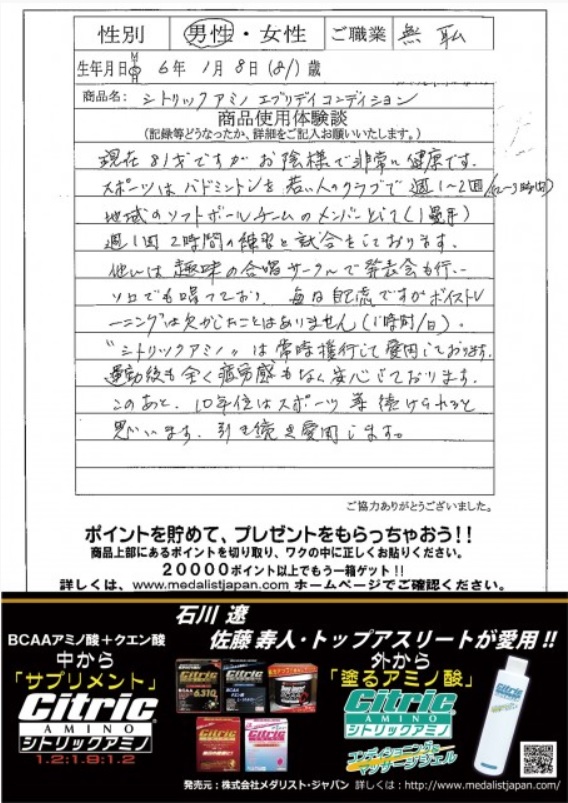 性別 男性・女性 ご職業 無職
生年月日 6年 1月 8日(81)歳
商品名: シトリックアミノ エブリデイコンディション
商品使用体験談
(記録等どうなったか、詳細をご記入お願いいたします。)
現在81才ですが お陰様で非常に健康です。
スポーツはバドミントンを若い人のクラブで週1〜2回
地域のソフトボールチームのメンバーとして(1塁手)
週1回2時間の練習と試合をしております。
他には趣味の合唱サークルで発表会も行い
ソロでも唱っており、毎日自己流ですがボイストレ
ーニングは欠かしたことはありません(1時間/日)。
"シトリックアミノ"は常時携行して愛用しております。
運動後も全く疲労感もなく安心しております。
このあと、10年位はスポーツ等続けられると
思います。引き続き愛用します。
ご協力ありがとうございました。
ポイントを貯めて、プレゼントをもらっちゃおう!!
商品上部にあるポイントを切り取り、ワクの中に正しくお貼りください。
20000ポイント以上でもう一箱ゲット!!
詳しくは、www.medalistjapan.com ホームページでご確認ください。
石川 遼
佐藤 寿人・トップアスリートが愛用!!
BCAAアミノ酸+クエン酸
中から
「サプリメント」
Citric
AMINO
シトリックアミノ
1.2:1.9:1.2
外から
「塗るアミノ酸」
Citric
AMINO
シトリックアミノ
コンディショニング&
マッサージジェル
発売元:株式会社メダリスト・ジャパン 詳しくは:http://www.medalistjapan.com/